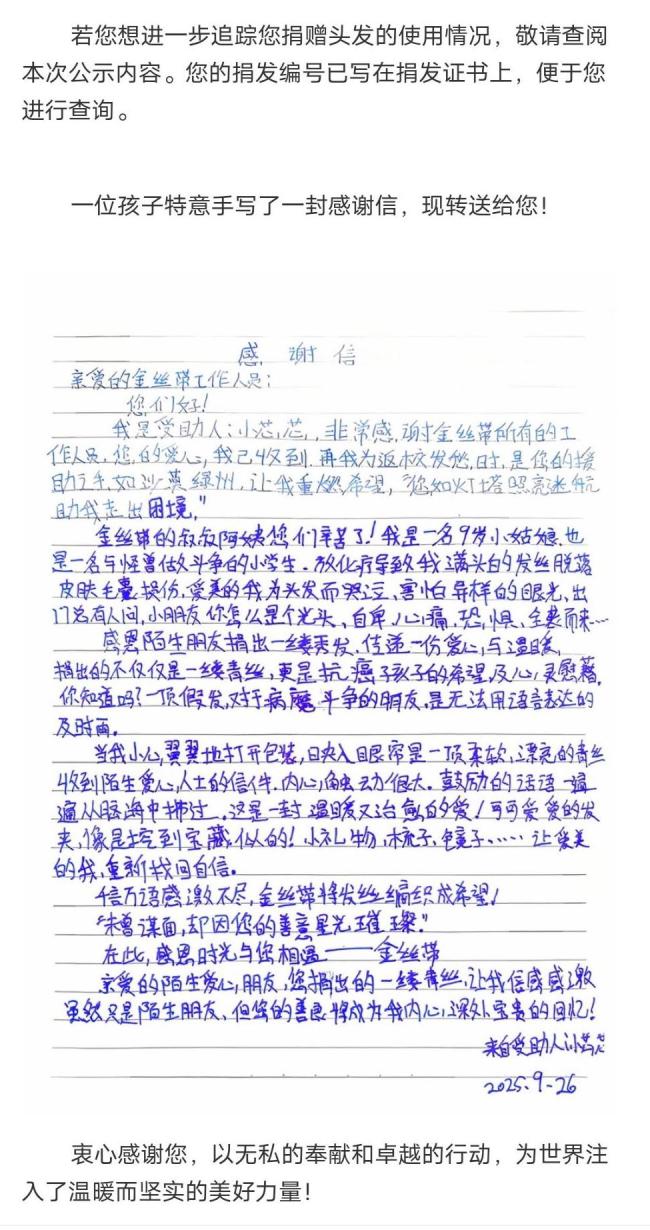 若您想进一步追踪您捐赠头发的使用情况，敬请查阅
本次公示内容。您的捐发编号已写在捐发证书上，便于您
进行查询。
一位孩子特意手写了一封感谢信，现转送给您！
感 谢 信
亲爱的金丝带工作人员：
您们好！
我是受助人：小芯芯，非常感谢金丝带所有的工
作人员，您的爱心，我已收到，再我为返校发愁时，是您的援
助之手如沙莫绿州，让我重燃希望，“您如灯塔照亮迷航
助我走出困境，”
金丝带的叔叔阿姨您们辛苦了！我是一名9岁小姑娘，也
是一名与怪兽做斗争的小学生．放化疗导致我满头的发丝脱落
皮肤毛囊损伤，爱美的我为头发而哭泣、害怕异样的眼光、出
门总有人问，小朋友你怎么是个光头、自卑、心痛、恐惧、全袭而来…
感恩陌生朋友捐出一缕秀发，传递一份爱心，与温暖，
捐出的不仅仅是一缕青丝，更是抗癌孩子的希望及心灵慰藉，
你知道吗？一顶假发，对于病魔斗争的朋友，是无法用语言表达的
及时雨。
当我小心翼翼地打开包装，映入眼帘是一顶柔软，漂亮的青丝
收到陌生爱心人士的信件．内心触动很大．鼓励的话语一遍
遍从脑海中拂过，这是一封温暖又治愈的爱！可可爱爱的发
夹，像是挖到宝藏似的！小礼物，梳子，镜子……让爱美
的我，重新找回自信。
千言万语感激不尽，金丝带将发丝编织成希望！
“未曾谋面，却因您的善意星光璀璨．”
在此，感恩时光与您相遇——金丝带
亲爱的陌生爱心朋友，您捐出的一缕青丝，让我倍感感激
虽然只是陌生朋友，但您的善良将成为我内心深处宝贵的回忆！
来自受助人小芯芯
2025.9-26
衷心感谢您，以无私的奉献和卓越的行动，为世界注
入了温暖而坚实的美好力量！